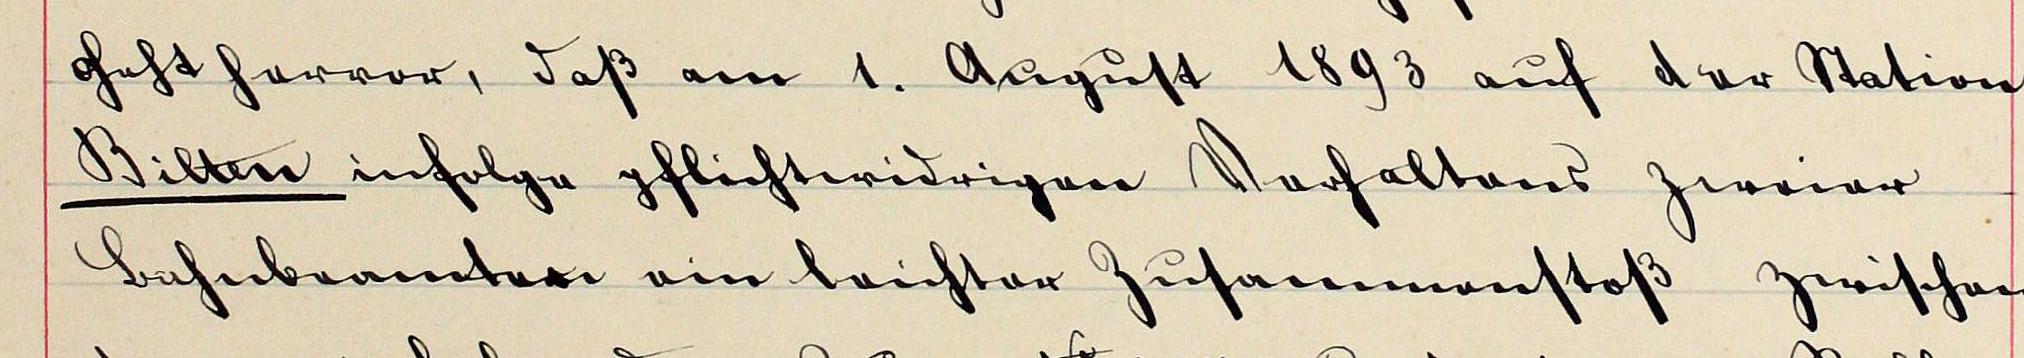 geht hervor, daß am 1. August 1893 auf der Station
Bilten infolge pflichtwidrigen Verhaltens zweier
Bahnbeamten ein leichter Zusammenstoß zwischen